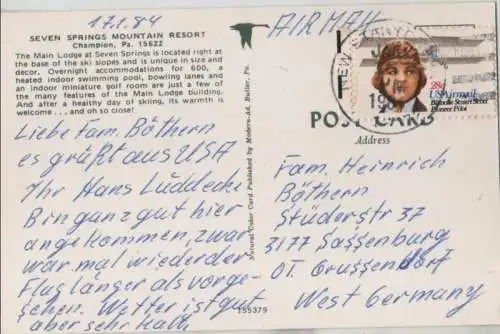 17.1.84
AIR MAIL
SEVEN SPRINGS MOUNTAIN RESORT
Champion, Pa. 15622
The Main Lodge at Seven Springs is located right at
the base of the ski slopes and is unique in size and
decor. Overnight accommodations for 600, a
heated indoor swimming pool, bowling lanes and
an indoor miniature golf room are just a few of
the many features of the Main Lodge Building.
And after a healthy day of skiing, its warmth is
welcome . . . and oh so close!
Liebe Fam. Böthern
es grüßt aus USA
Ihr Hans Lüddecke
Bin ganz gut hier
angekommen, zwar
war mal wieder der
Flug länger als vorge-
sehen. Wetter ist gut
aber sehr kalt
Natural Color Card Published by Modern-Ad, Butler, Pa.
155379
NEW STANTON
PM
28c
USAirmail
Blanche Stuart Scott
Pioneer Pilot
POST CARD
Address
Fam. Heinrich
Böthern
Stüderstr 37
3177 Sassenburg
OT. Grussendorf
West Germany